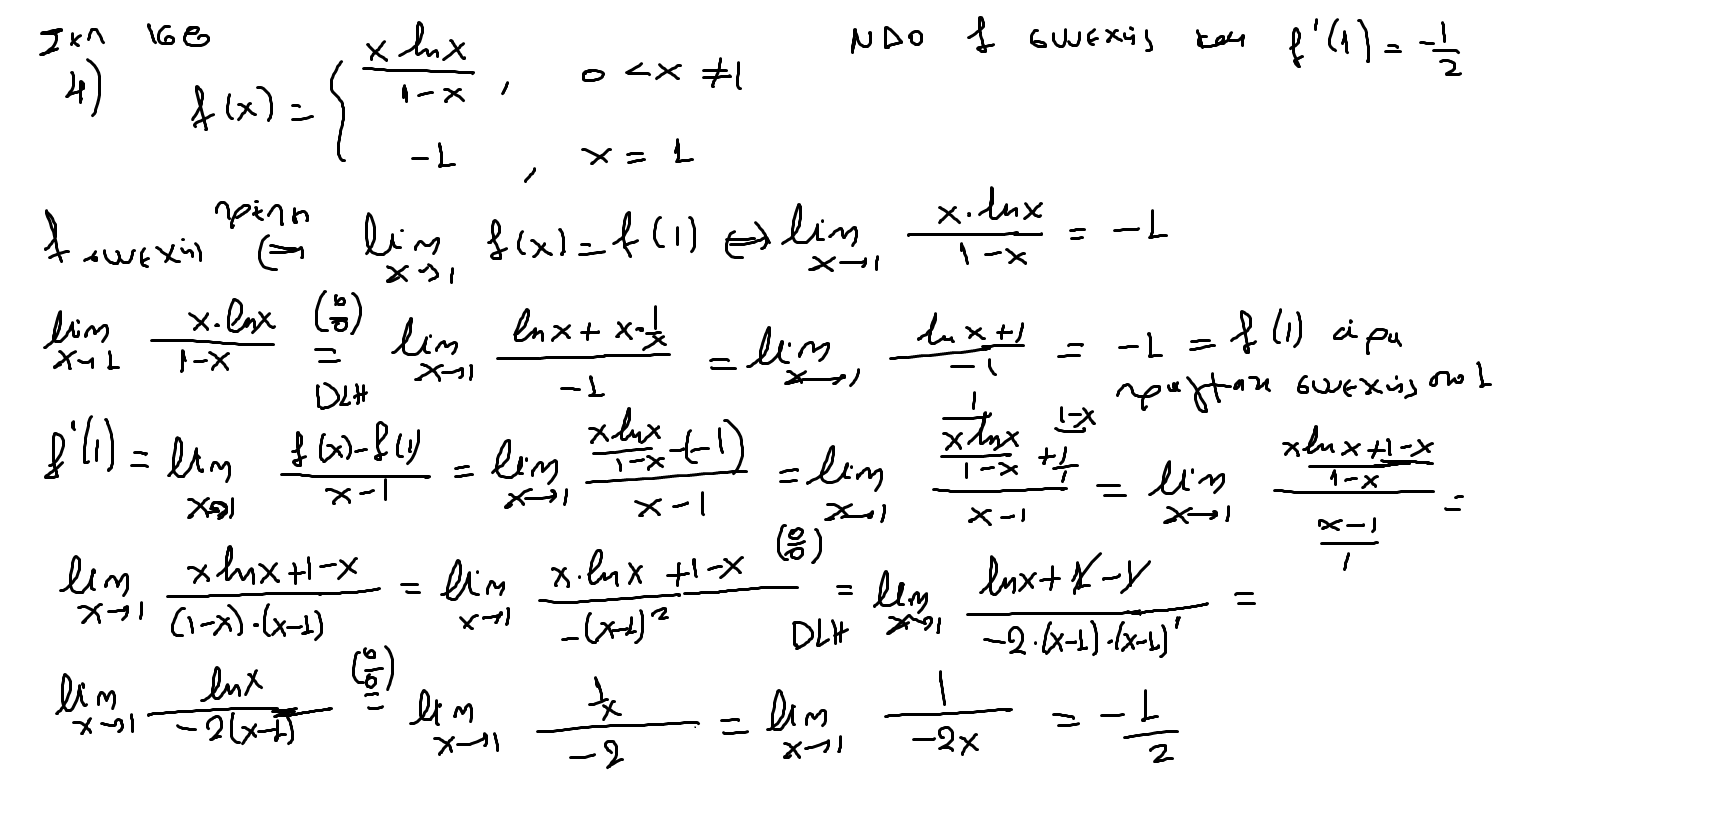 Σχ 168 ΝΔΟ f συνεχής και f'(1) = -1/2
4) f(x) = { x lnx / 1-x , 0 < x ≠ 1
-1 , x = 1
f συνεχής πρέπει ⇔ lim x→1 f(x) = f(1) ⇔ lim x→1 x·lnx / 1-x = -1
lim x→1 x·lnx / 1-x (0/0) = DLH lim x→1 lnx + x·1/x / -1 = lim x→1 lnx+1 / -1 = -1 = f(1) άρα
πράγματι συνεχής στο 1
f'(1) = lim x→1 f(x)-f(1) / x-1 = lim x→1 (x lnx / 1-x -(-1)) / x-1 = lim x→1 (x lnx / 1-x + 1/1) / x-1 = lim x→1 (x lnx+1-x / 1-x) / (x-1 / 1) =
lim x→1 x lnx+1-x / (1-x)·(x-1) = lim x→1 x·lnx +1-x / -(x-1)² (0/0) = DLH lim x→1 lnx+1-1 / -2·(x-1)·(x-1)' =
lim x→1 lnx / -2(x-1) (0/0) = lim x→1 1/x / -2 = lim x→1 1 / -2x = -1/2